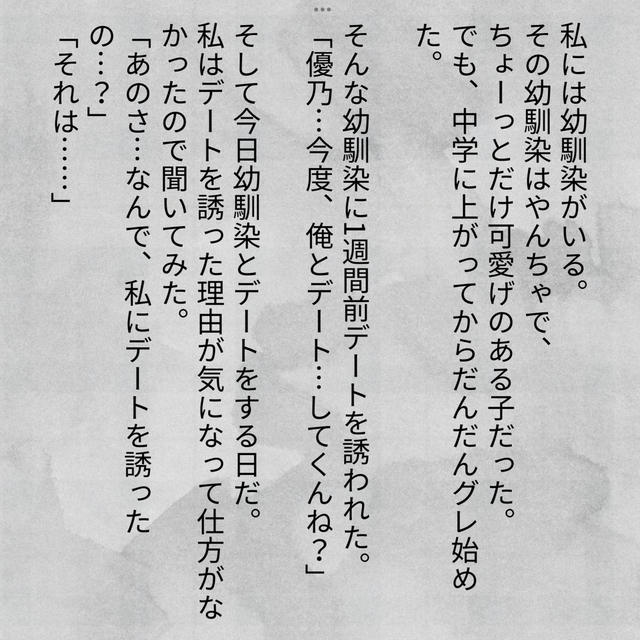 私には幼馴染がいる。
その幼馴染はやんちゃで、
ちょーっとだけ可愛げのある子だった。
でも、中学に上がってからだんだんグレ始め
た。
そんな幼馴染に1週間前デートを誘われた。
「優乃…今度、俺とデート…してくんね？」
そして今日幼馴染とデートをする日だ。
私はデートを誘った理由が気になって仕方がな
かったので聞いてみた。
「あのさ…なんで、私にデートを誘った
の…？」
「それは……」